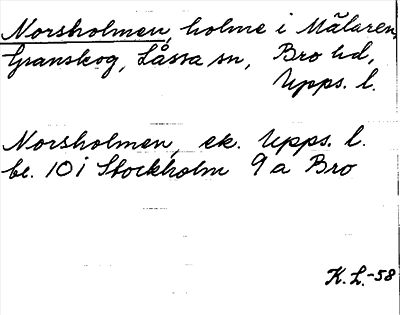 Norsholmen, holme i Mälaren,
Granskog, Låssa sn, Bro hd,
Upps. l.
Norsholmen, ek. Upps. l.
bl. 10 i Stockholm 9 a Bro
K. L. -58